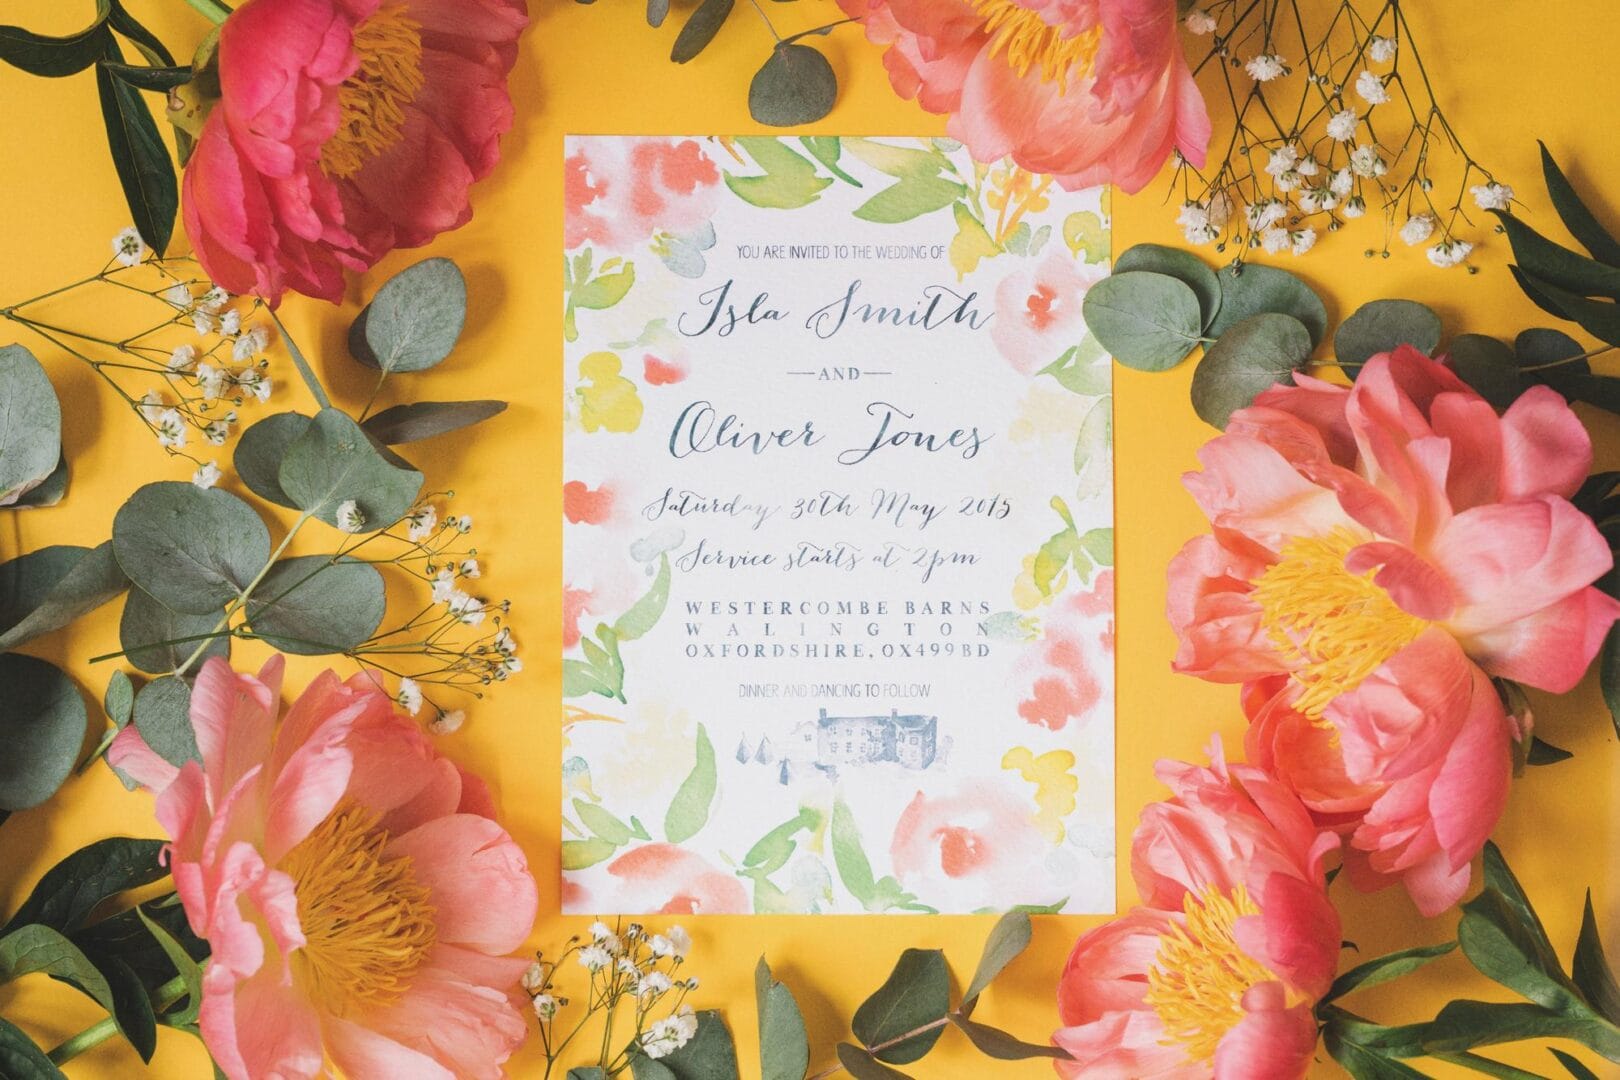 YOU ARE INVITED TO THE WEDDING OF
Isla Smith
AND
Oliver Jones
Saturday 30th May 2015
Service starts at 2pm
WESTERCOMBE BARNS
WALINGTON
OXFORDSHIRE, OX499BD
DINNER AND DANCING TO FOLLOW